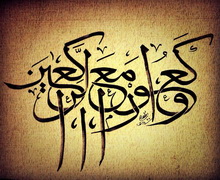 واركعوا مع الراكعين